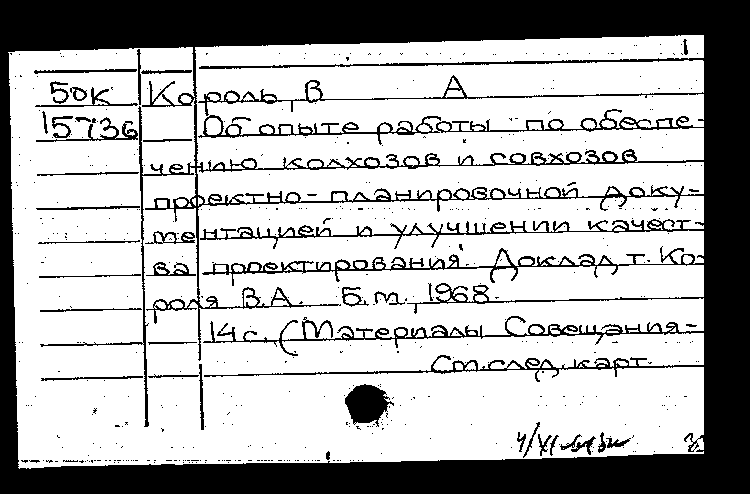 1
50к Король, В А
15736 Об опыте работы по обеспе-
чению колхозов и совхозов
проектно-планировочной доку-
ментацией и улучшении качест-
ва проектирования. Доклад т. Ко-
роля В.А. Б.м., 1968.
14 с. (Материалы Совещания-
См.след.карт.